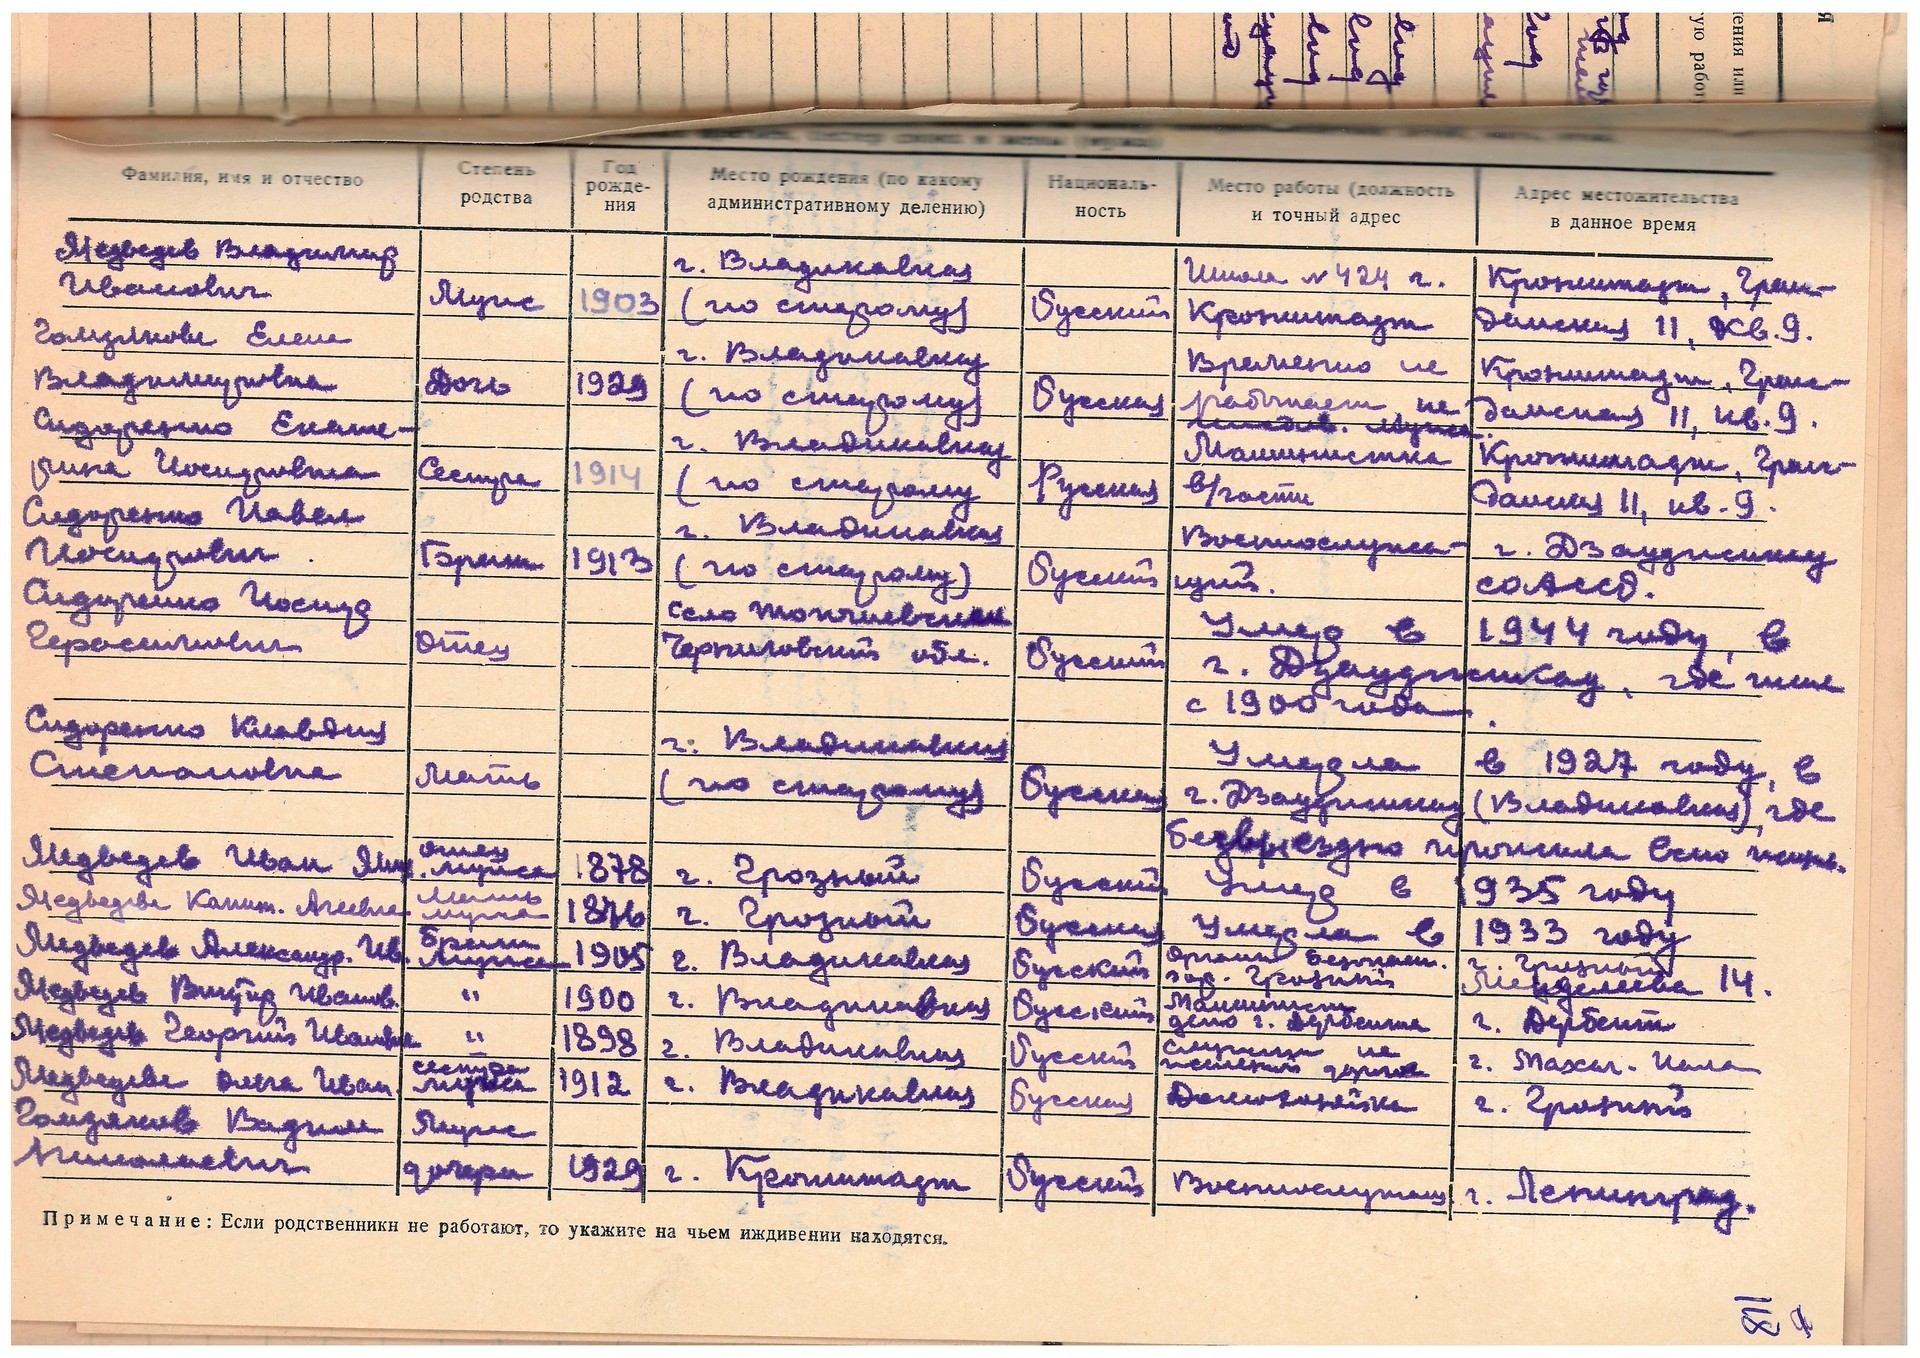 Фамилия, имя и отчество
Степень родства
Год рожде-
ния
Место рождения (по какому
административному делению)
Националь-
ность
Место работы (должность
и точный адрес
Адрес местожительства
в данное время
Медведев Владимир г. Владикавказ Школа № 424 г. Кронштадт, Граж-
Иванович Муж 1903 (по старому) Русский Кронштадт данская 11, кв. 9.
Гомзякова Елена г. Владикавказ Временно не Кронштадт, Граж-
Владимировна Дочь 1929 (по старому) Русская работает, на данская 11, кв. 9.
иждив. мужа.
Сидоренко Екате- г. Владикавказ Машинистка Кронштадт, Граж-
рина Иосифовна Сестра 1914 (по старому Русская в/части данская 11, кв. 9.
Сидоренко Павел г. Владикавказ Военнослужа- г. Дзауджикау
Иосифович Брат 1913 (по старому) Русский щий. СОАССР.
Сидоренко Иосиф село Умер в 1944 году, в
Герасимович Отец Черниговский обл. Русский г. Дзауджикау, где жил
с 1900 года.
Сидоренко Клавдия г. Владикавказ Умерла в 1927 году, в
Степановна Мать (по старому) Русская г. Дзауджикау (Владикавказ), где
безвыездно прожила всю жизнь.
Медведев Иван Мих. отец мужа 1878 г. Грозный Русский Умер в 1935 году
Медведева Капит. Агеевна мать мужа 1876 г. Грозный Русская Умерла в 1933 году
Медведев Александр. Ив. Брат мужа 1905 г. Владикавказ Русский Органы безопасн. гор. Грозный г. Грозный Менделеева 14.
Медведев Виктор Иванов. " 1900 г. Владикавказ Русский Машинист депо г. Дербента г. Дербент
Медведев Георгий Иванович " 1898 г. Владикавказ Русский служащий железной дороги г. Махач-Кала
Медведева Ольга Иван. сестра мужа 1912 г. Владикавказ Русская Домохозяйка г. Грозный
Гомзяков Вадим Муж
Николаевич дочери 1929 г. Кронштадт Русский Военнослужащ. г. Ленинград.
Примечание: Если родственники не работают, то укажите на чьем иждивении находятся.